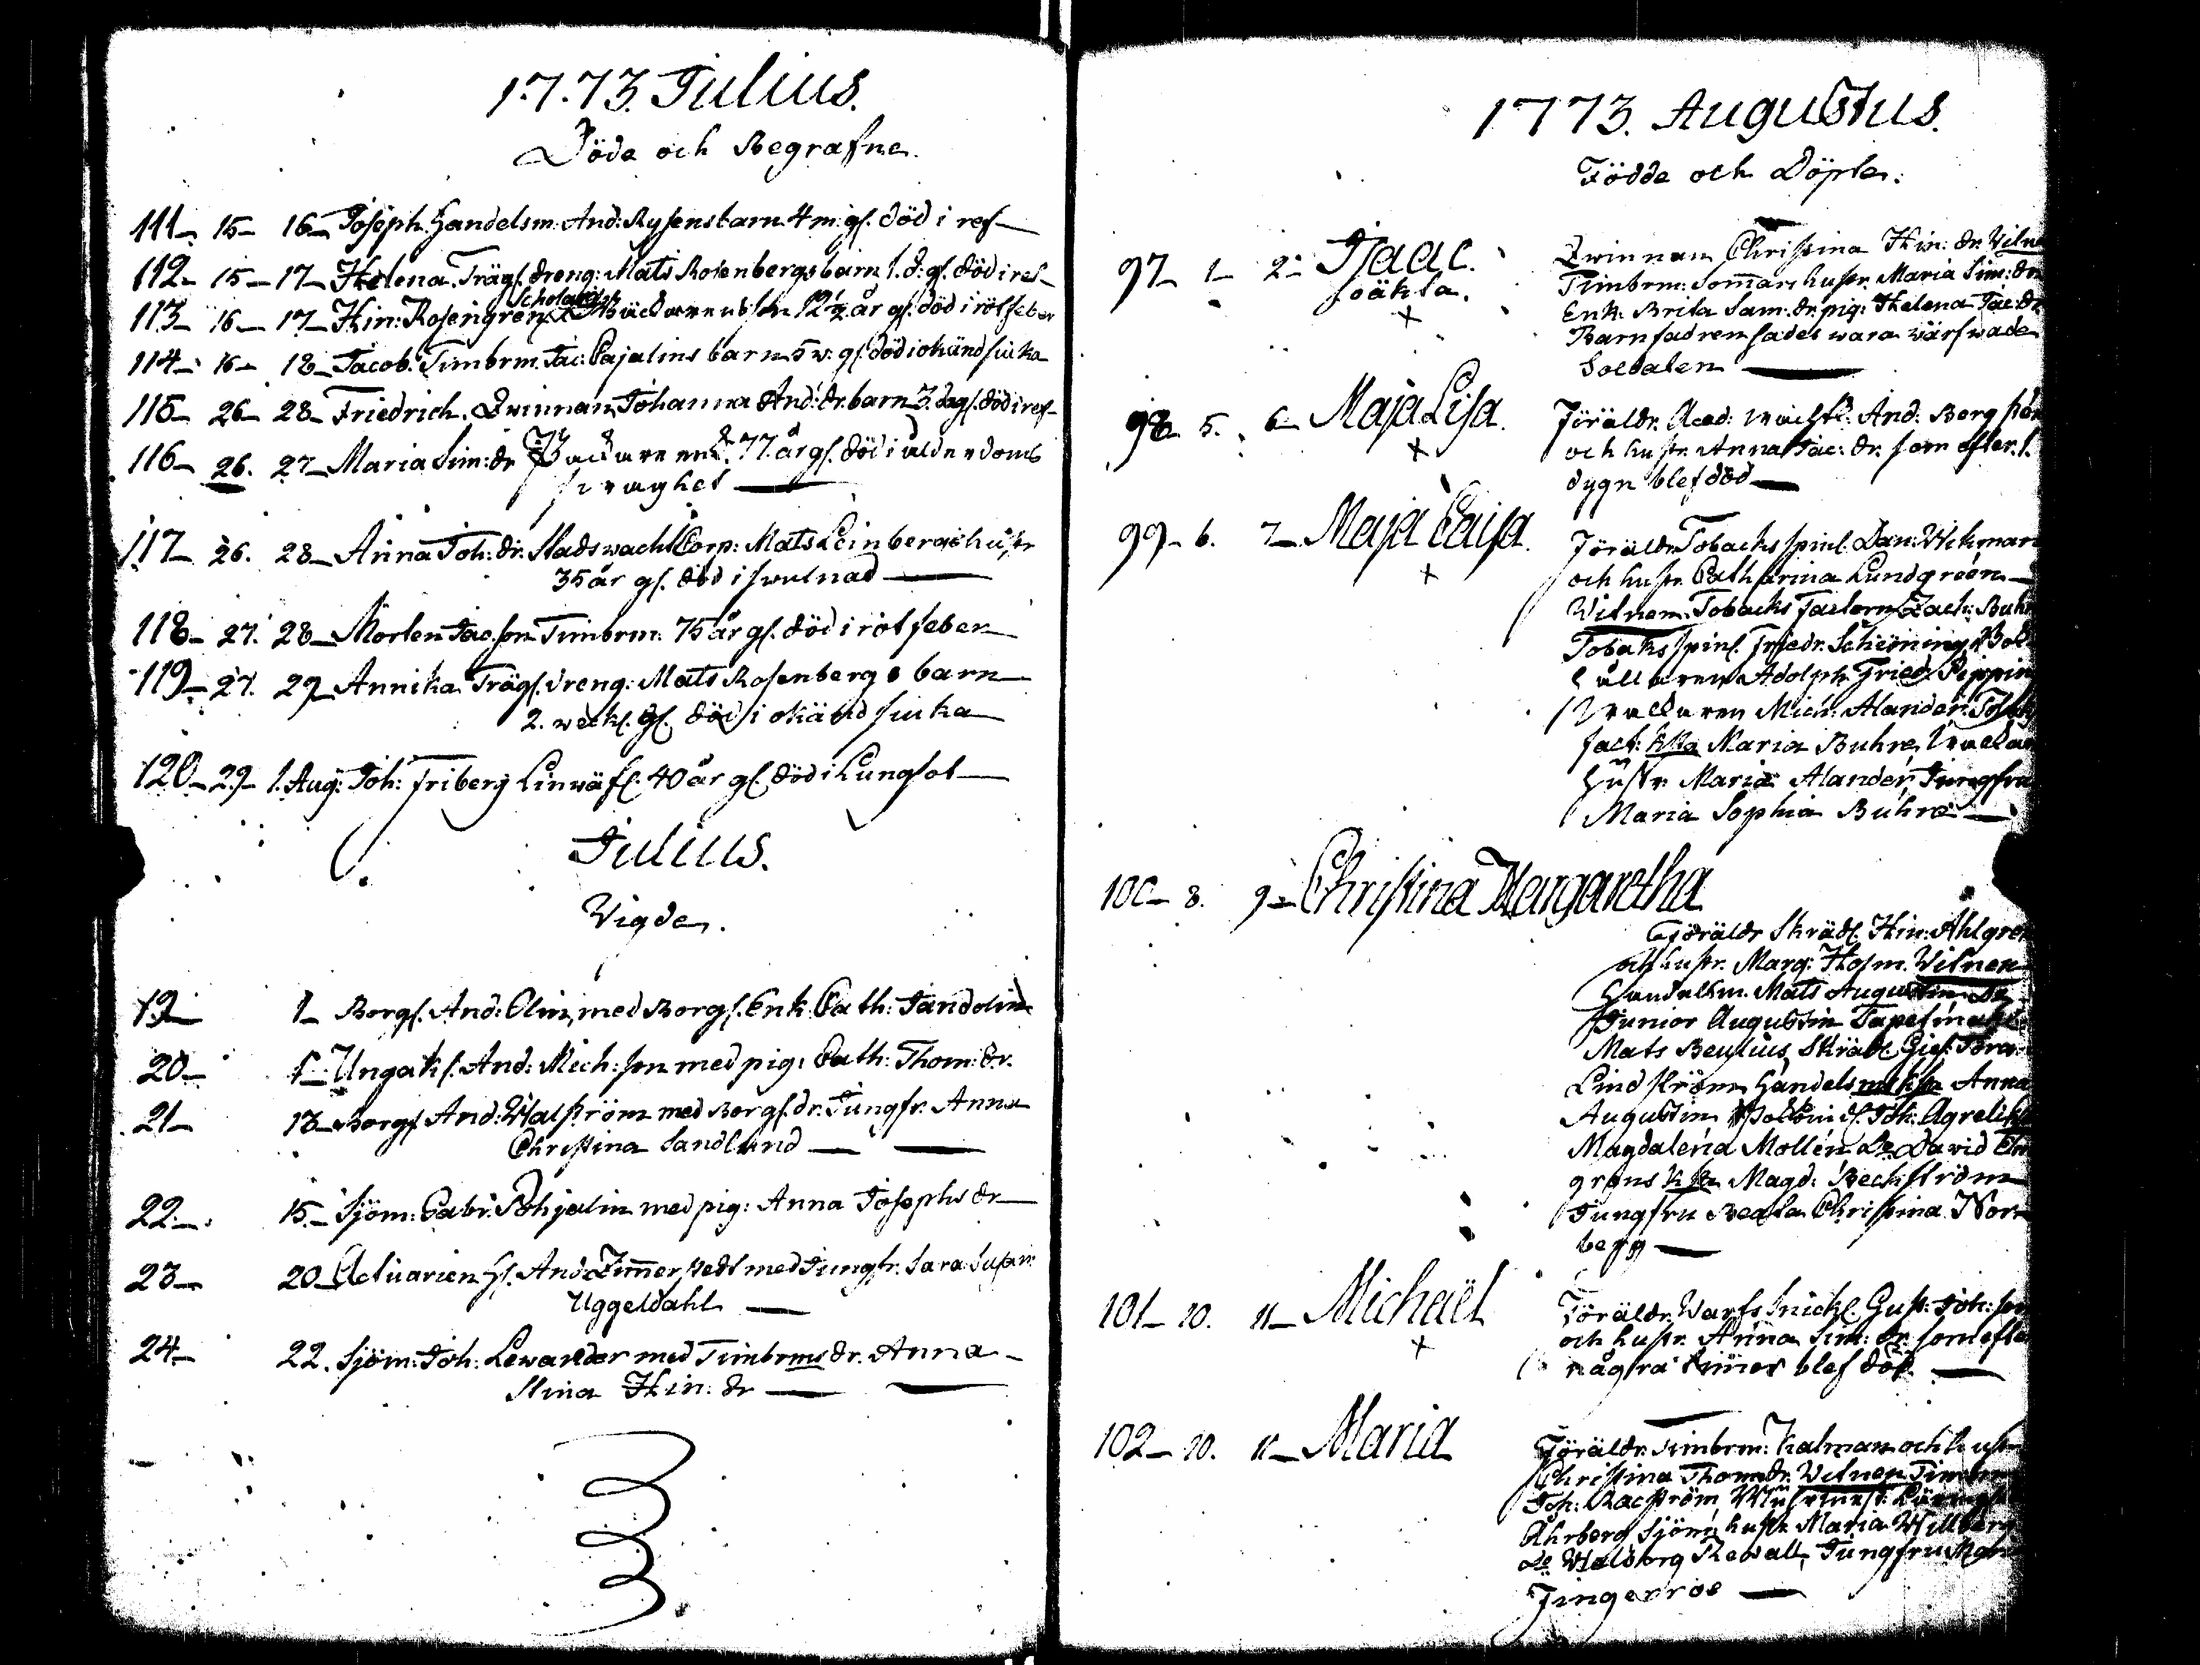 1773. Julius.
Döde och Begrafne.
111- 15- 16- Joseph. Handelsm: And: Rysens barn 4 m: gl. död i ref-
112- 15- 17- Helena. Trägl. dreng: Mats Rosenbergs barn 1. d: gl. död i ref-
Scholaris
113- 16- 17- Hin: Rosengren 12½ år gl. död i rötfeber
114- 16- 18- Jacob. Timbrm. Jac: Cajalins barn 5 w: gl. död i okänd siuka
115- 26- 28- Friedrich. Qvinnan Johanna And: dr. barn 3. dag. död i ref-
116- 26. 27- Maria Sim: dr 77. år gl. död i ålderdoms
swaghet
117- 26. 28- Anna Joh: dr. Stadswacht Corp: Mats Leinbergs hustr
35 år gl. död i swulnad
118- 27. 28- Morten Jac: son Timbrm: 75 år gl. död i rötfeber
119- 27. 29- Annika. Trägl. dreng: Mats Rosenbergs barn
2. weck. gl. död i okänd siuka
120- 29- 1. Aug: Joh: Friberg Linwäfl. 40 år gl. död i Lungsot
Julius.
Vigde.
19- 1- Borgl. And: Olin, med Borgl. Enk. Cath: Tandolin
20- 1- Ungakl. And: Mich: son med pig: Cath: Thom: dr.
21- 13- Borgl And: Walström med Borgl. dr. Jungfr. Anna
Christina Sandlund
22- 15- Sjöm: Gabr: Pohjalin med pig: Anna Josephs dr
23- 20- Actuarien Hr. And: Zimmerstedt med Jungfr. Sara Susan:
Uggeldahl
24- 22. Sjöm: Joh: Lewander med Timbrms dr. Anna
Stina Hin: dr
1773. Augustus.
Födde och Döpte.
97- 1- 2- Isaac. Qvinnan Christina Hin: dr. Vitn
oäkta. Timbrm: Somars hustr. Maria Sim: dr
Enk: Brita Sam: dr. pig: Helena Jac: dr
Barnfadren sades wara wärfwade
Soldaten
98- 5. 6- Maja Lisa. Föräldr. Acad: wachtk. And: Berg
och hustr. Anna Jac: dr. som efter 1.
dygn blef död
99- 6. 7- Maja Caisa. Föräldr. Tobacks spinl. Dan: Wickman
och hustr. Catharina Lundgreen
Vitnen: Tobacks Factorn Zach: Buhr
Tobaks spinl. Friedr. Schiöning
Adolph Fried. Pippin
Mich: Alander. Tobaks
fact: k:sta Maria Buhre,
hustr: Maria Alander, Jungfru
Maria Sophia Buhre
100- 8. 9- Christina Margaretha
Föräldr Skrädl. Hin: Ahlgren
och hustr. Marg: Holm. Vitnen
Handelsm. Mats Augustin
Junior Augustin
Mats Beulius, Skrädl.
Lindström, Handelsm k:sta Anna
Augustin Joh: Agrelis
Magdalena Mollén D:o David
grens k:sta Magd: Beckström
Jungfru Beata Christina Nor
berg
101- 10. 11- Michaël Föräldr. Warfs snickl. Gust: Joh: son
och hustr. Anna Sim: dr. som efter
några timer blef död.
102- 10. 11- Maria Föräldr. Timbrm: Kalman och hustr
Christina Thom: dr. Vitnen Timbrm
Joh: Racström,
Ahrberg Sjöm: hustr. Maria Willberg
D:o Walborg Rewall, Jungfru Maria
Fingerroos